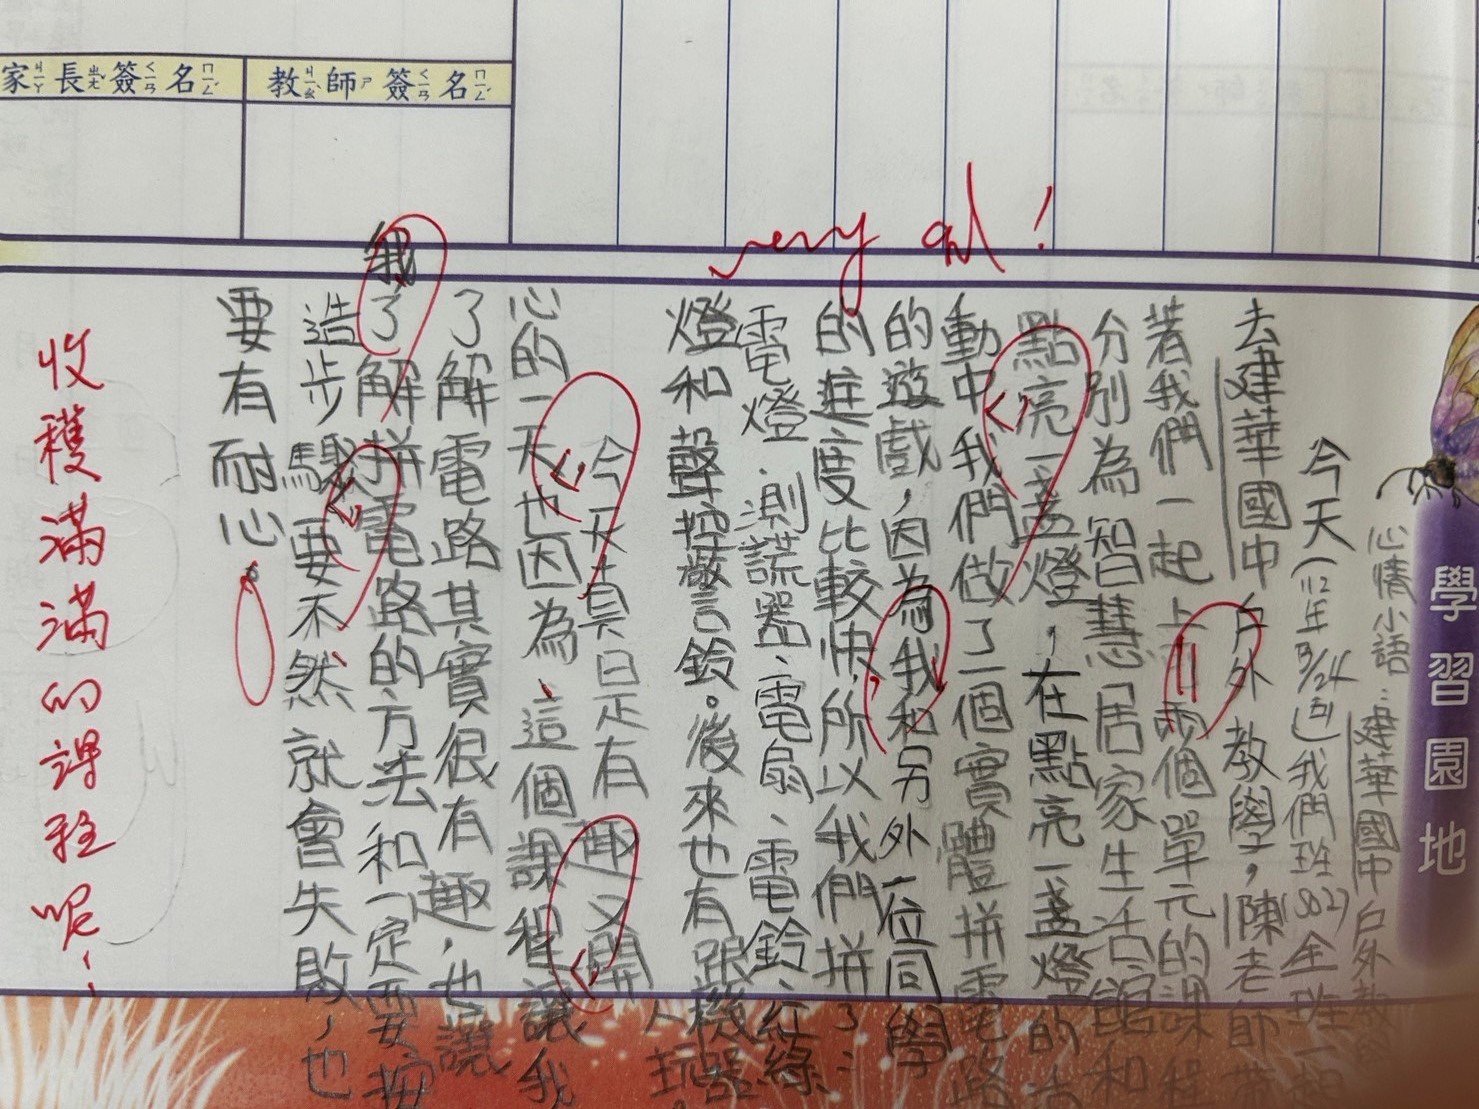 家長簽名
教師簽名
very good!
學習園地
心情小語:建華國中戶外教學
今天(112年3/24回)我們班(802)全班一起
去建華國中戶外教學,陳老師帶
著我們一起上兩個單元的課程
分別為智慧居家生活館和
點亮一盞燈,在點亮一盞燈的活
動中我們做了一個實體拼電路
的遊戲,因為我和另外一位同學
的進度比較快所以我們拼了:
電燈、測謊器、電扇、電鈴、紅綠
燈和聲控警鈴。後來也有跟機器
人玩。
今天真是有趣又開
心的一天也因為、這個課程讓我
了解電路其實很有趣,也讓
我了解拼電路的方法和一定要按
造步驟要不然就會失敗,也
要有耐心。
收穫滿滿的課程呢!